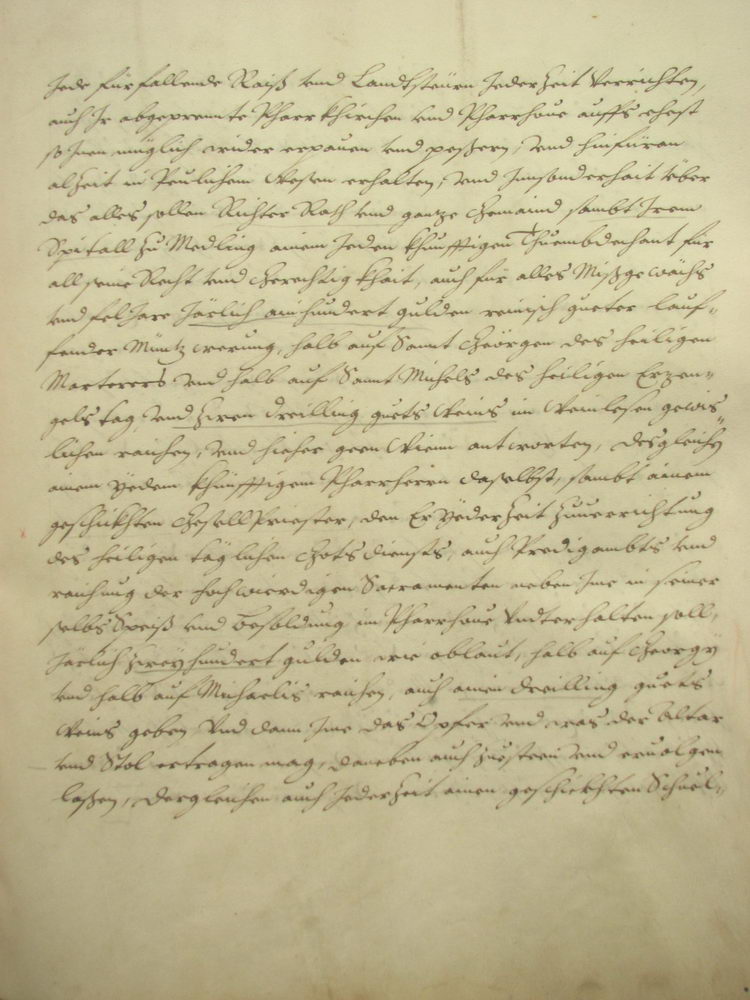 Jede fürfallende Raiß vnd Landtsteürn Jederzeit Verrichten,
auch Jr abgeprennte Pharrkhirchen vnd Pharrhoue auffs ehest
so Jnen müglich wider erpauen vnd peßern, vnd hinfüran
alzeit in Peulichem Wesen erhalten, vnd Jnnsonderhait Vber
das alles sollen Richter Rath vnd gantze Gemaind sambt Jrem
Spitall zu Medling ainem Jeden khünfftigen Thuembdechant für
all seine Recht vnd Gerechtigkhait, auch für alles Mißgewächs
vnd feljare Järlich ainhundert gulden reinisch gueter lauf-
fender Müntz werung, halb auf Sannt Geörgen des heiligen
Marterers vnd halb auf Sannt Michels des heiligen Erzen-
gels tag, vnd zwen dreilling guets Weins im Weinlesen gewis-
lichen raichen, vnd hieher geen Wienn antworten, desgleichen
ainem yedem khünfftigem Pharrherrn daselbst, sambt ainem
geschickhten GesellPriester, den Er Yederzeit zuuerrichtung
des heiligen täglichen Gotsdiensts, auch Predigambts vnd
raichung der hochwierdigen Sacramenten neben Jme in seiner
selbs Speiß vnd besoldung im Pharrhoue Vndterhalten soll,
Järlich zweyhundert gulden wie oblaut, halb auf Georgy
vnd halb auf Michaelis raichen, auch ainen dreilling guets
Weins geben, Vnd dann Jme das Opfer vnd was der Altar
vnd Stol ertragen mag, daneben auch zuesteen vnd eruolgen
laßen, Dergleichen auch Jederzeit ainen geschickhten Schuel-